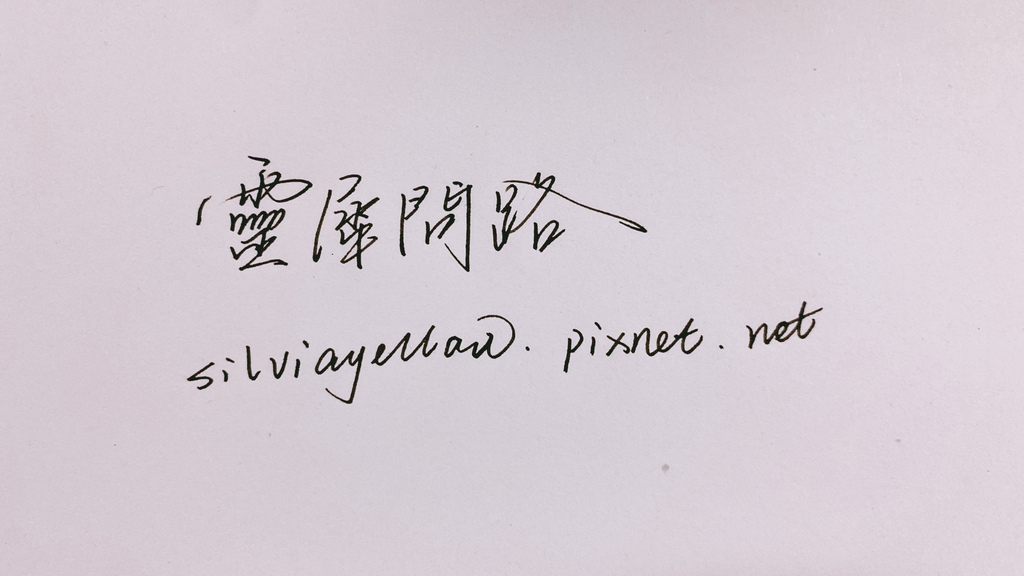 靈犀問路
silviayellow.pixnet.net